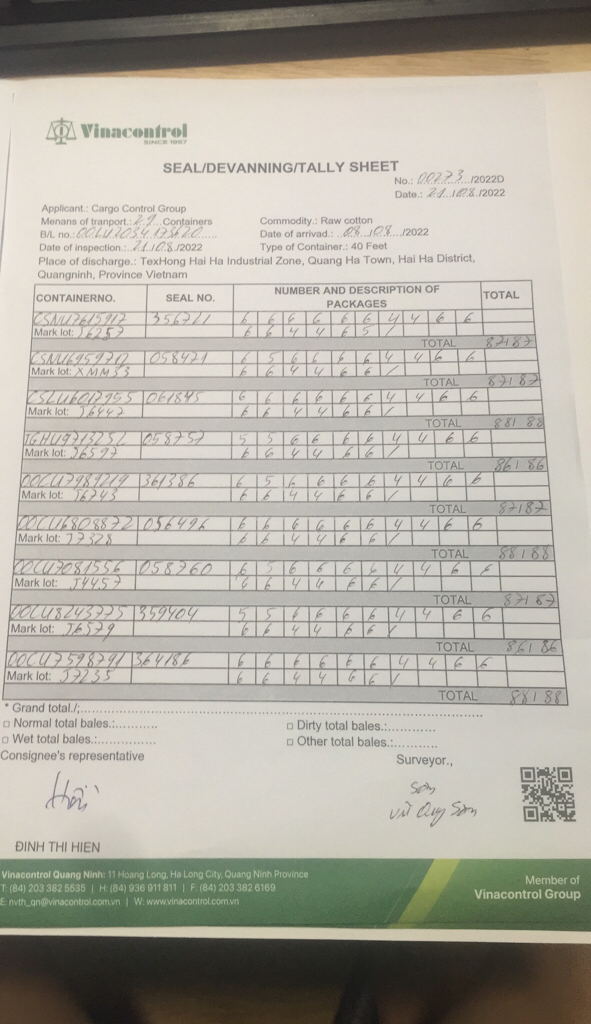 Vinacontrol
SINCE 1957
SEAL/DEVANNING/TALLY SHEET
No.: 00273 /2022D
Date.: 21/08/2022
Applicant.: Cargo Control Group
Menans of tranport.: 29 Containers
Commodity.: Raw cotton
B/L no.:
Date of arrivad.: 08/08/2022
Date of inspection.: 21/08/2022
Type of Container.: 40 Feet
Place of discharge.: TexHong Hai Ha Industrial Zone, Quang Ha Town, Hai Ha District,
Quangninh, Province Vietnam
CONTAINERNO. SEAL NO. NUMBER AND DESCRIPTION OF PACKAGES TOTAL
CSNU7615917 356711 6 6 6 6 6 6 4 4 6 6
Mark lot: J6257 6 6 4 4 6 5 /
TOTAL 87/87
CSNU6959712 058421 6 5 6 6 6 6 4 4 6 6
Mark lot: XMM33 6 6 4 4 6 6 /
TOTAL 87/87
CSLU6017955 061845 6 6 6 6 6 6 4 4 6 6
Mark lot: J6447 6 6 4 4 6 6 /
TOTAL 88/88
TGHU9713252 058757 5 5 6 6 6 6 4 4 6 6
Mark lot: J6597 6 6 4 4 6 6 /
TOTAL 86/86
OOCU7989219 361386 6 5 6 6 6 6 4 4 6 6
Mark lot: J6743 6 6 4 4 6 6 /
TOTAL 87/87
OOCU6808872 056496 6 6 6 6 6 6 4 4 6 6
Mark lot: J7328 6 6 4 4 6 6 /
TOTAL 88/88
OOCU7081556 058760 6 5 6 6 6 6 4 4 6 6
Mark lot: J4457 6 6 4 4 6 6 /
TOTAL 87/87
OOCU8243775 359404 5 5 6 6 6 6 4 4 6 6
Mark lot: J6579 6 6 4 4 6 6 /
TOTAL 86/86
OOCU7598791 364186 6 6 6 6 6 6 4 4 6 6
Mark lot: J7235 6 6 4 4 6 6 /
TOTAL 88/88
* Grand total./:
□ Normal total bales.:
□ Dirty total bales.:
□ Wet total bales.:
□ Other total bales.:
Consignee's representative
Surveyor.,
Sơn
Vũ Quy Sơn
ĐINH THI HIEN
Vinacontrol Quang Ninh: 11 Hoang Long, Ha Long City, Quang Ninh Province
T: (84) 203 382 5535 | H: (84) 936 911 811 | F: (84) 203 382 6169
E: nvth_qn@vinacontrol.com.vn | W: www.vinacontrol.com.vn
Member of
Vinacontrol Group